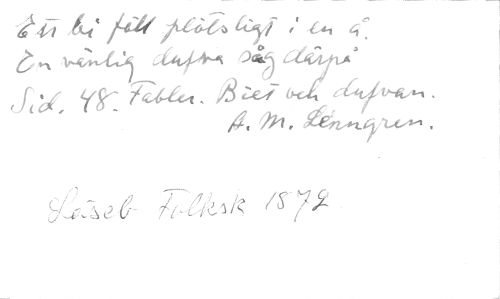 Ett bi föll plötsligt i en å.
En vänlig dufva såg därpå
Sid. 48. Fabler. Biet och dufvan.
A. M. Lenngren.
Läseb Folksk 1872